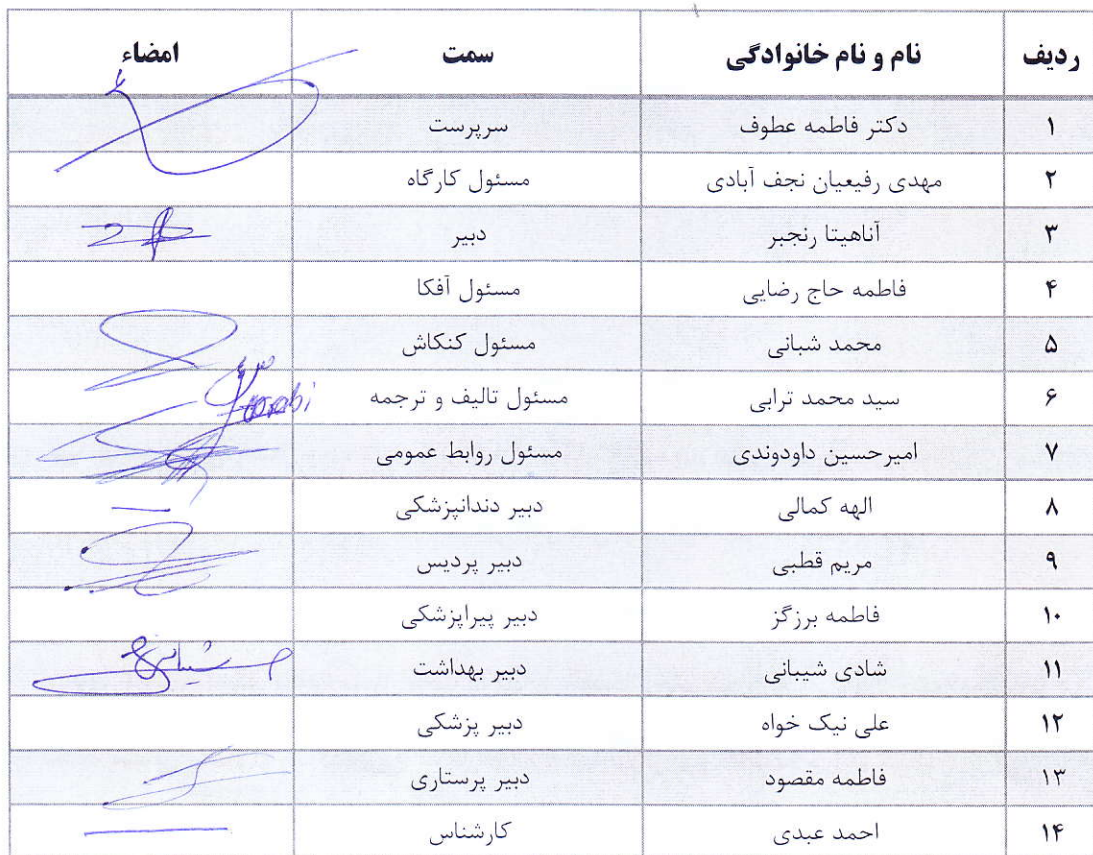 ردیف نام و نام خانوادگی سمت امضاء
۱ دکتر فاطمه عطوف سرپرست
۲ مهدی رفیعیان نجف آبادی مسئول کارگاه
۳ آناهیتا رنجبر دبیر
۴ فاطمه حاج رضایی مسئول آفکا
۵ محمد شبانی مسئول کنکاش
۶ سید محمد ترابی مسئول تالیف و ترجمه
۷ امیرحسین داودوندی مسئول روابط عمومی
۸ الهه کمالی دبیر دندانپزشکی
۹ مریم قطبی دبیر پردیس
۱۰ فاطمه برزگز دبیر پیراپزشکی
۱۱ شادی شیبانی دبیر بهداشت
۱۲ علی نیک خواه دبیر پزشکی
۱۳ فاطمه مقصود دبیر پرستاری
۱۴ احمد عبدی کارشناس